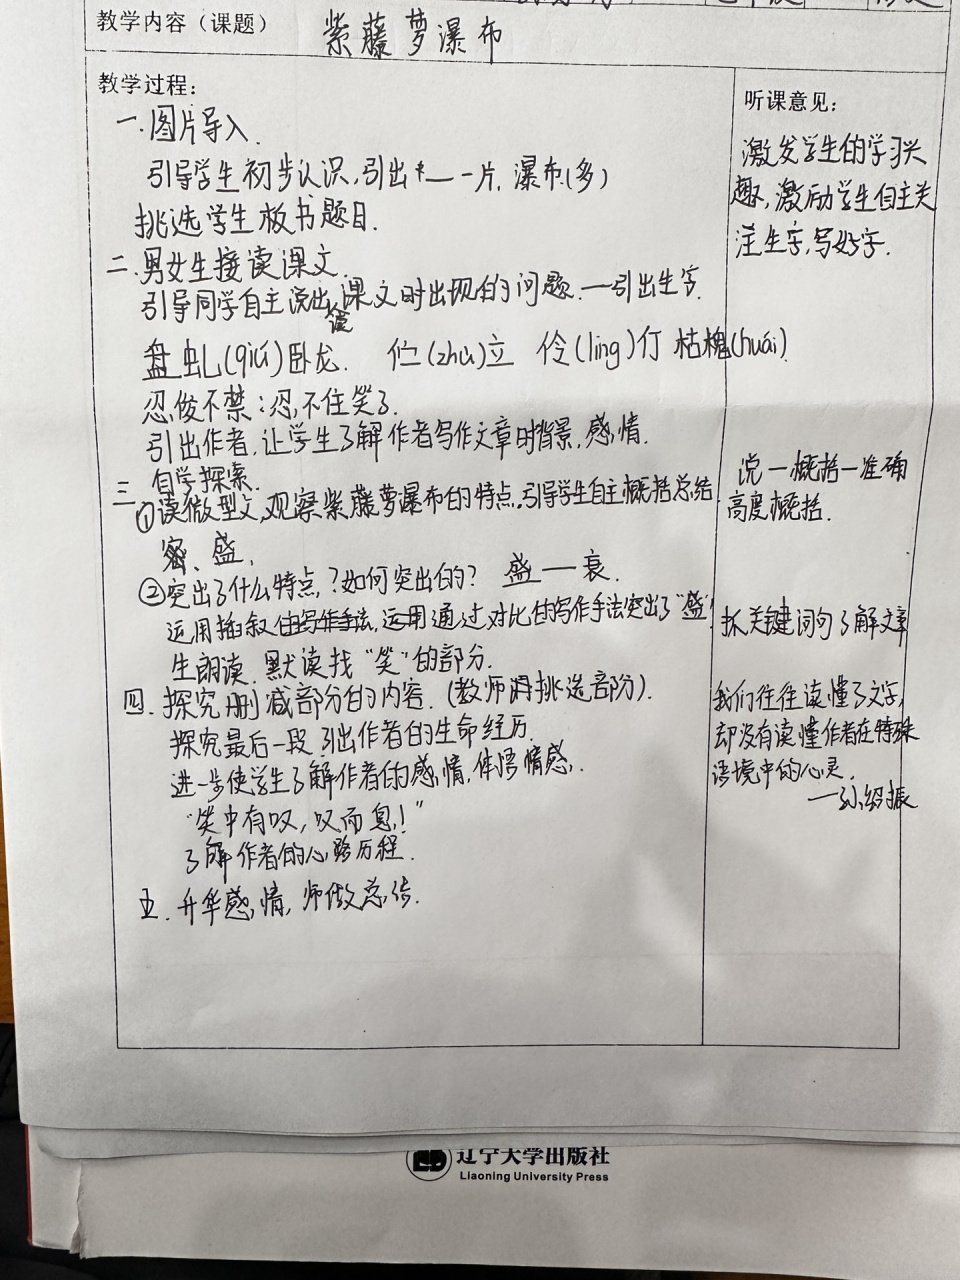 教学内容（课题） 紫藤萝瀑布
教学过程：
一.图片导入.
引导学生初步认识,引出 一片.瀑布.(多)
挑选学生板书题目.
二.男女生接读课文.
引导同学自主说出读课文时出现的问题.—引出生字.
盘虬(qiú)卧龙. 伫(zhù)立 伶(líng)仃 枯槐(huái)
忍俊不禁:忍不住笑了.
引出作者,让学生了解作者写作文章时背景,感情.
自学探索.
三
①读微型文,观察紫藤萝瀑布的特点,引导学生自主概括总结
密、盛,
②突出了什么特点,?如何突出的? 盛——衰.
运用 通过对比的写作手法突出了"盛"
生朗读.默读找"笑"的部分.
四.探究删减部分的内容.(教师 挑选部分).
探究最后一段 引出作者的生命经历.
进一步使学生了解作者的感情,体悟情感,.
"笑中有叹,叹而息!"
了解作者的心路历程.
五.升华感情,师做总结.
听课意见：
激发学生的学习兴
趣,激励学生自主关
注生字,写好字.
说—概括—准确
高度概括.
抓关键词句了解文章
我们往往读懂了文字,
却没有读懂作者在特殊
语境中的心灵.
—孙绍振
辽宁大学出版社
Liaoning University Press